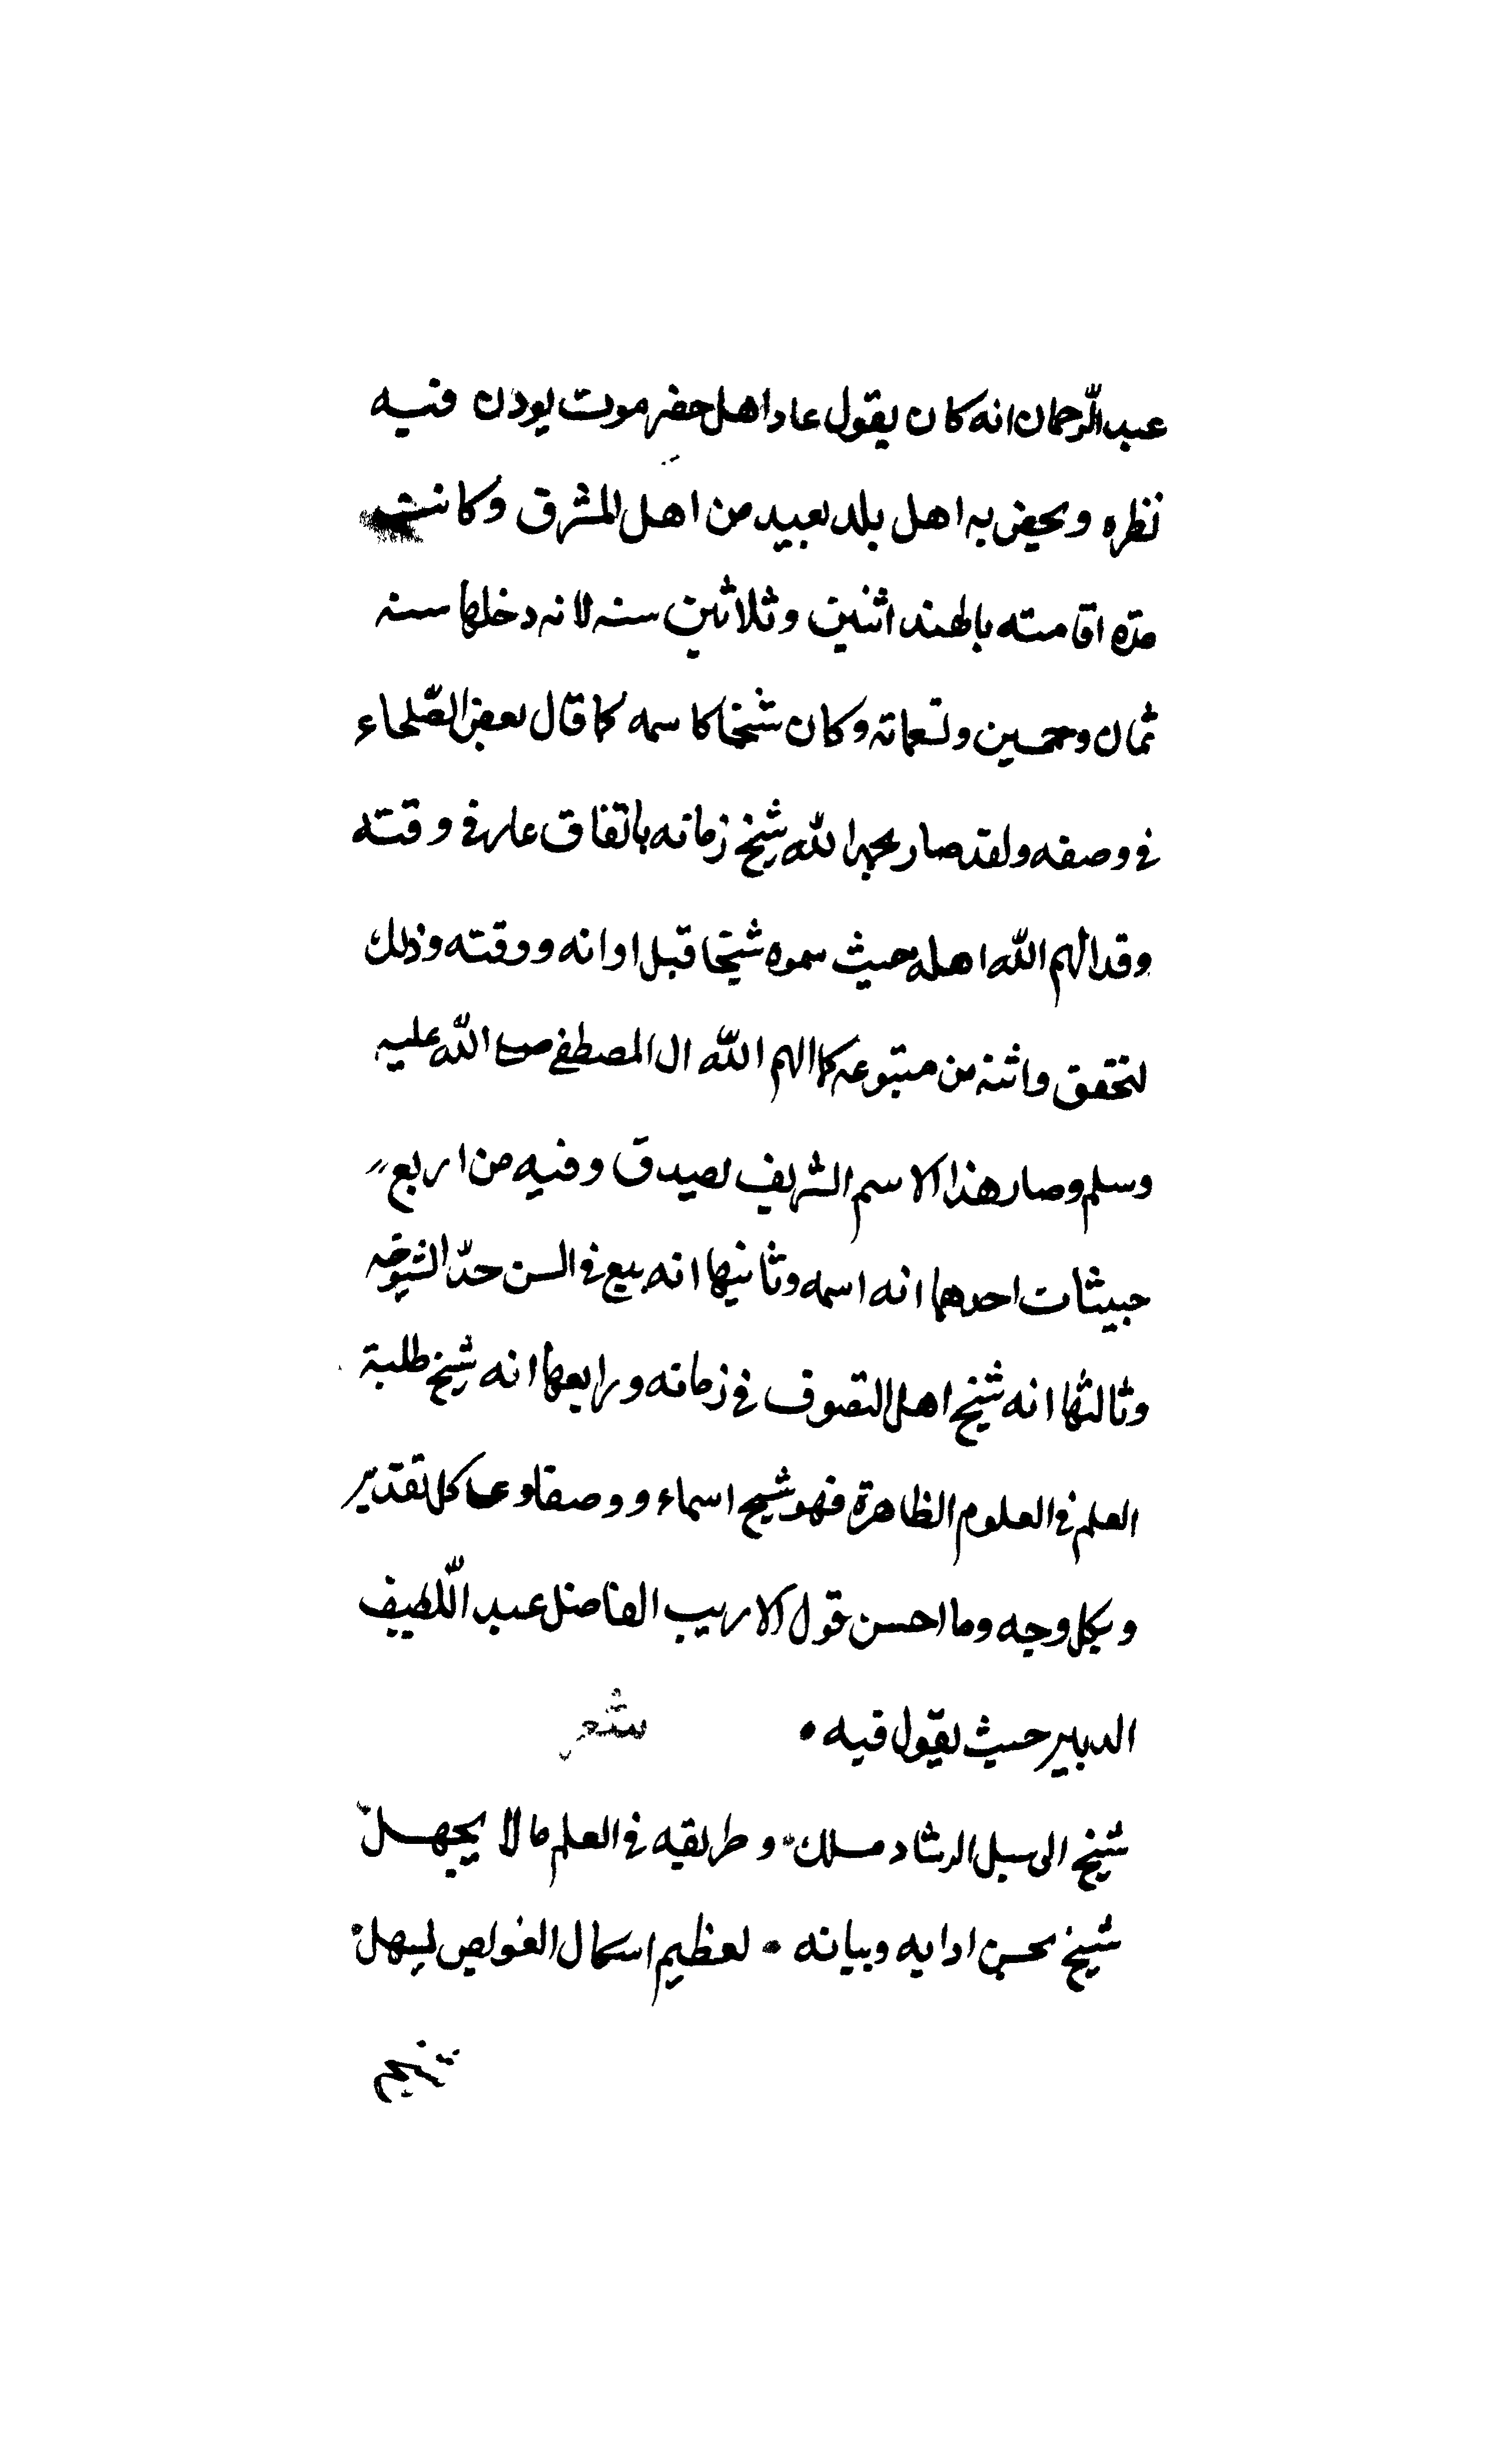 عبد الرّحمان انه كان يقول عاد اهل حضرموت يودن فيه
نظره ويحيض به اهل بلد بعيد من اهل المشرق وكانت
مدّه اقامته بالهند اثنين وثلاثين سنه لانه دخلها سنه
ثمان وخمسين وتسعمائه وكان شيخا كاسمه كما قال بعض الصّلحاء
في وصفه ولقد صار بحمد الله شيخ زمانه باتفاق عارفى وقته
وقد الهم الله اهله حيث سموه شيخا قبل اوانه ووقته وذلك
لتحقق واثنه من متبوعه كما الهم الله ال المصطفى صلى الله عليه
وسلم وصار هذا الاسم الشريف لصيدق وفيه من اربع
حيثيات احدها انه اسمه وثانيها انه بيع في السن حدّ الشيوخه
وثالثها انه شيخ اهل التصوف في زمانه ورابعها انه شيخ طلبة
العلم في العلوم الظاهرة فهو شيخ اسماء ووصفا وعلى كل تقدير
وبكل وجه وما احسن قول الاريب الفاضل عبد اللّطيف
الدبير حيث يقول فيه • شعر
شيخ الى سبل الرشاد مسلك • وطريقه في العلم ما لا يجهل
شيخ بحسن ادايه وبيانه • لعظيم اسكال الغوايص ليهل